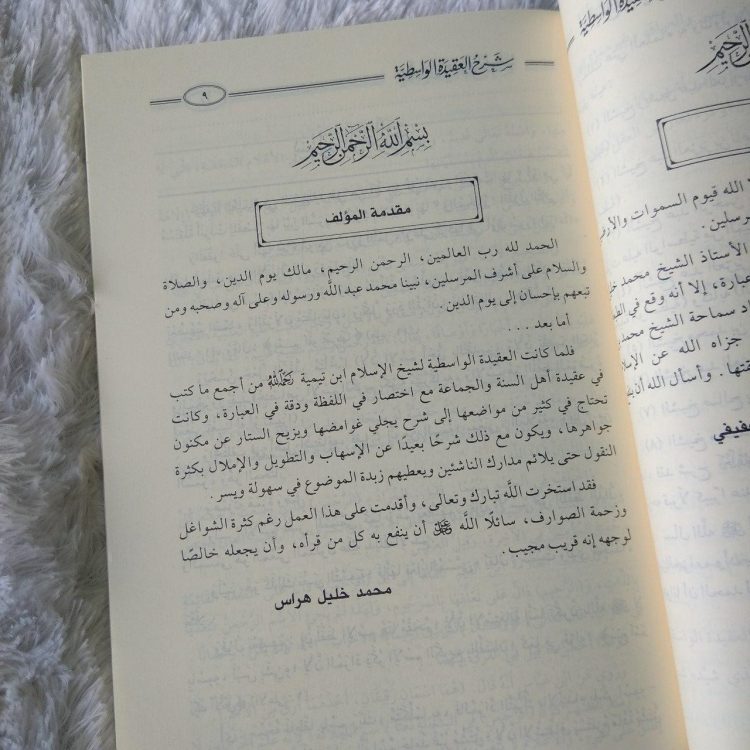 شرح العقيدة الواسطية
٩
بسم الله الرحمن الرحيم
مقدمة المؤلف
الحمد لله رب العالمين، الرحمن الرحيم، مالك يوم الدين، والصلاة
والسلام على أشرف المرسلين، نبينا محمد عبد الله ورسوله وعلى آله وصحبه ومن
تبعهم بإحسان إلى يوم الدين.
أما بعد . . .
فلما كانت العقيدة الواسطية لشيخ الإسلام ابن تيمية رحمه الله من أجمع ما كتب
في عقيدة أهل السنة والجماعة مع اختصار في اللفظة ودقة في العبارة، وكانت
تحتاج في كثير من مواضعها إلى شرح يجلي غوامضها ويزيح الستار عن مكنون
جواهرها، ويكون مع ذلك شرحًا بعيدًا عن الإسهاب والتطويل والإملال بكثرة
النقول حتى يلائم مدارك الناشئين ويعطيهم زبدة الموضوع في سهولة ويسر.
فقد استخرت الله تبارك وتعالى، وأقدمت على هذا العمل رغم كثرة الشواغل
وزحمة الصوارف، سائلًا الله ﷻ أن ينفع به كل من قرأه، وأن يجعله خالصًا
لوجهه إنه قريب مجيب.
محمد خليل هراس
العقيدة الواسطية
الله قيوم السموات والأرض
المرسلين.
الأستاذ الشيخ محمد
عبارة، إلا أنه وقع في
سماحة الشيخ محمد
جزاه الله عن
وأسأل الله أن
عفيفي